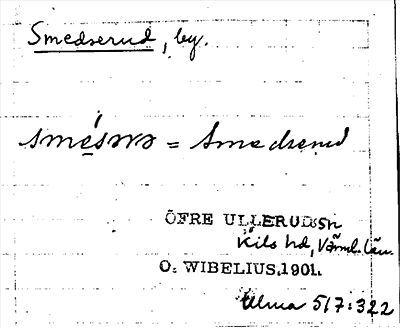 Smedserud, by.
smésωə = Smedserud
ÖFRE ULLERUDS sn
Kils hd, Värml. län.
O. WIBELIUS. 1901.
Ulma 517:322